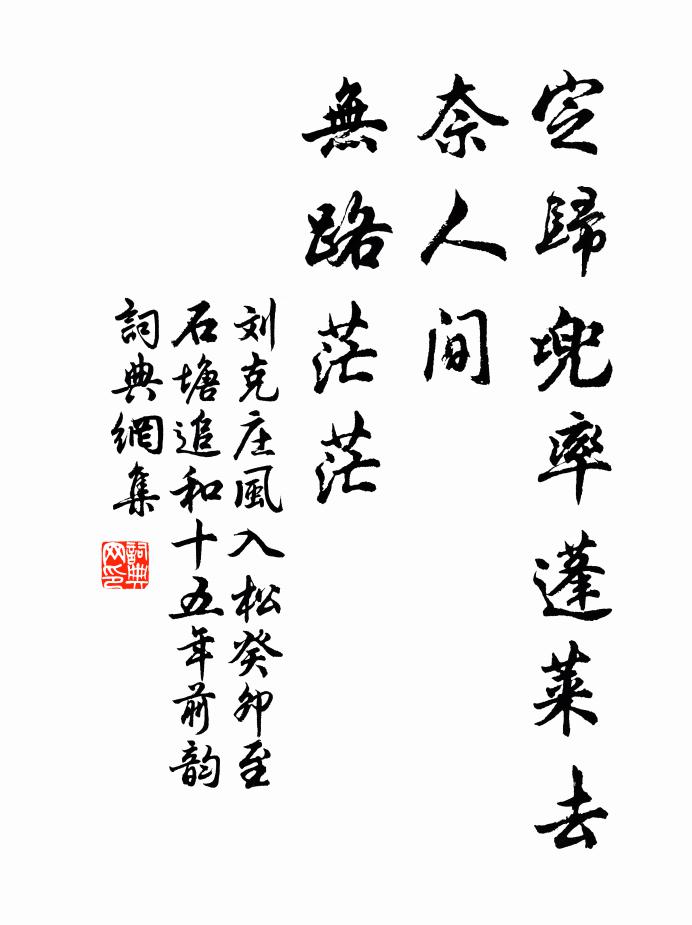 定歸兜率蓬萊去
奈人间
無路茫茫
刘克庄風入松癸卯至
石塘追和十五年前韵
詞典網集
詞典网印